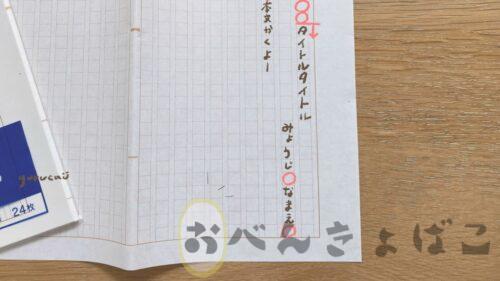 タイトルタイトル
みょうじ○なまえ○
本文かくよー
24枚
おべんきょばこ